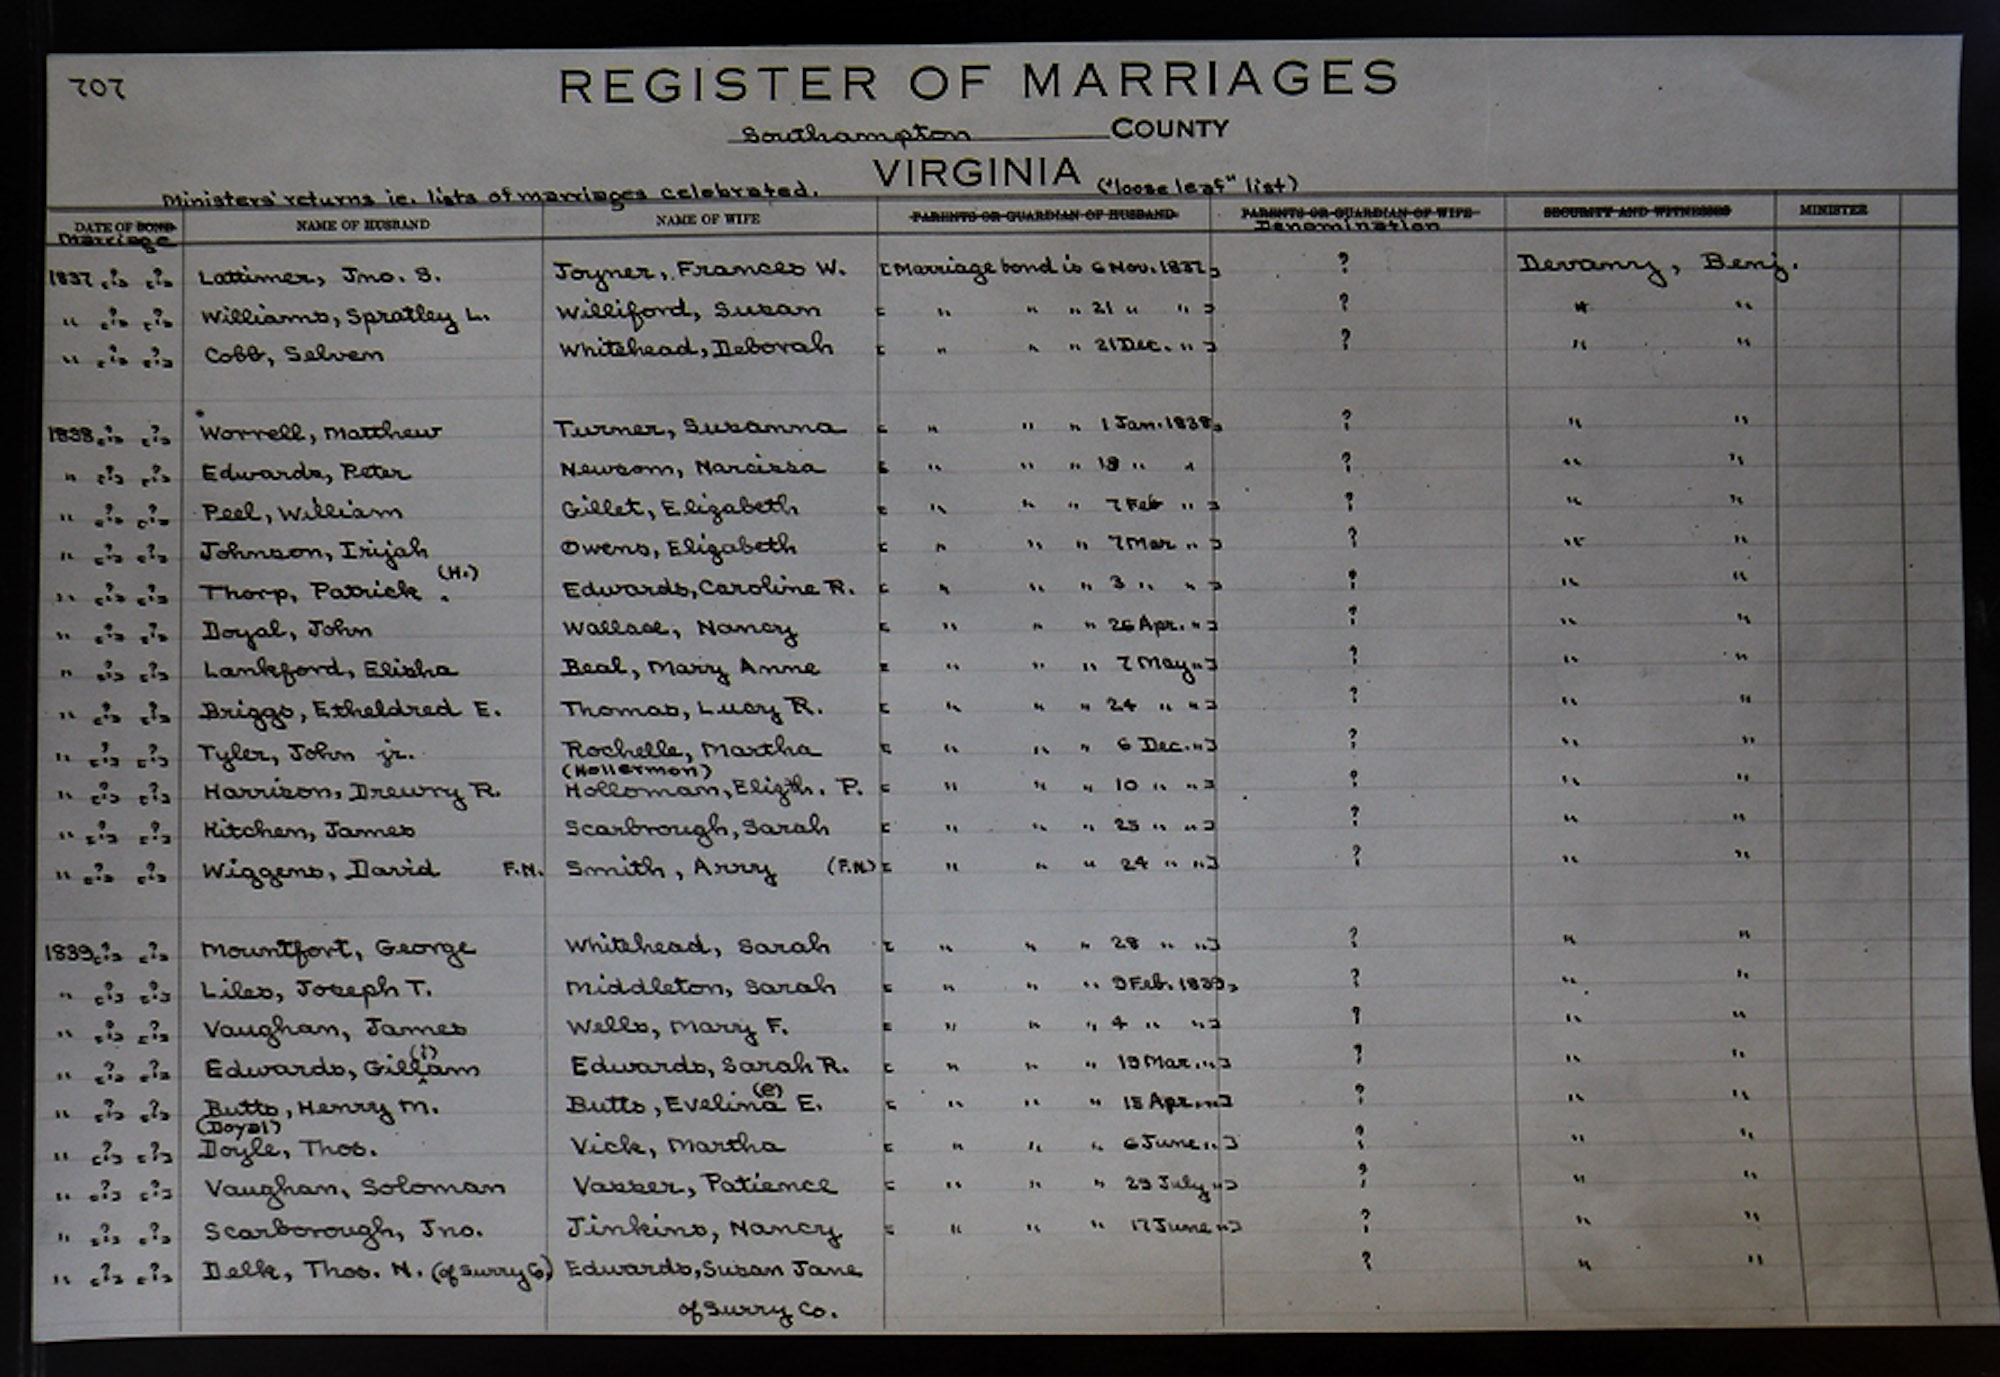 707
REGISTER OF MARRIAGES
Southampton COUNTY
VIRGINIA ("loose leaf" list)
Ministers' returns ie. lists of marriages celebrated.
DATE OF BOND Marriage NAME OF HUSBAND NAME OF WIFE PARENTS OR GUARDIAN OF HUSBAND PARENTS OR GUARDIAN OF WIFE Denomination SECURITY AND WITNESSES MINISTER
1837 [?] [?] Lattimer, Jno. S. Joyner, Frances W. [Marriage bond is 6 Nov. 1837] ? Devany, Benj.
" [?] [?] Williams, Spratley L. Williford, Susan [ " " " 21 " " ] ? " "
" [?] [?] Cobb, Selven Whitehead, Deborah [ " " " 21 Dec. " ] ? " "
1838 [?] [?] Worrell, Matthew Turner, Susanna [ " " " 1 Jan. 1838] ? " "
" [?] [?] Edwards, Peter Newsom, Narcissa [ " " " 18 " " ? " "
" [?] [?] Peel, William Gillet, Elizabeth [ " " " 7 Feb " ] ? " "
" [?] [?] Johnson, Irijah Owens, Elizabeth [ " " " 7 Mar " ] ? " "
" [?] [?] Thorp, Patrick (H.) . Edwards, Caroline R. [ " " " 3 " " ] ? " "
" [?] [?] Doyal, John Wallace, Nancy [ " " " 26 Apr. " ] ? " "
" [?] [?] Lankford, Elisha Beal, Mary Anne [ " " " 7 May " ] ? " "
" [?] [?] Briggs, Etheldred E. Thomas, Lucy R. [ " " " 24 " " ] ? " "
" [?] [?] Tyler, John jr. Rochelle, Martha [ " " " 6 Dec. " ] ? " "
(Hollermon)
" [?] [?] Harrison, Drewry R. Holloman, Elizth. P. [ " " " 10 " " ] ? " "
" [?] [?] Kitchen, James Scarbrough, Sarah [ " " " 23 " " ] ? " "
" [?] [?] Wiggens, David F.N. Smith, Arry (F.N) [ " " " 24 " " ] ? " "
1839 [?] [?] Mountfort, George Whitehead, Sarah [ " " " 28 " " ] ? " "
" [?] [?] Liles, Joseph T. Middleton, Sarah [ " " " 9 Feb. 1839] ? " "
" [?] [?] Vaughan, James Wells, Mary F. [ " " " 4 " " ] ? " "
" [?] [?] Edwards, Gill(i)am Edwards, Sarah R. [ " " " 19 Mar. " ] ? " "
" [?] [?] Butts, Henry M. Butts, Evelina (e) E. [ " " " 18 Apr. " ] ? " "
(Doyal)
" [?] [?] Doyle, Thos. Vick, Martha [ " " " 6 June " ] ? " "
" [?] [?] Vaughan, Soloman Vasser, Patience [ " " " 29 July " ] ? " "
" [?] [?] Scarborough, Jno. Jinkins, Nancy [ " " " 17 June " ] ? " "
" [?] [?] Delk, Thos. N. (of Surry Co) Edwards, Susan Jane ? " "
of Surry Co.